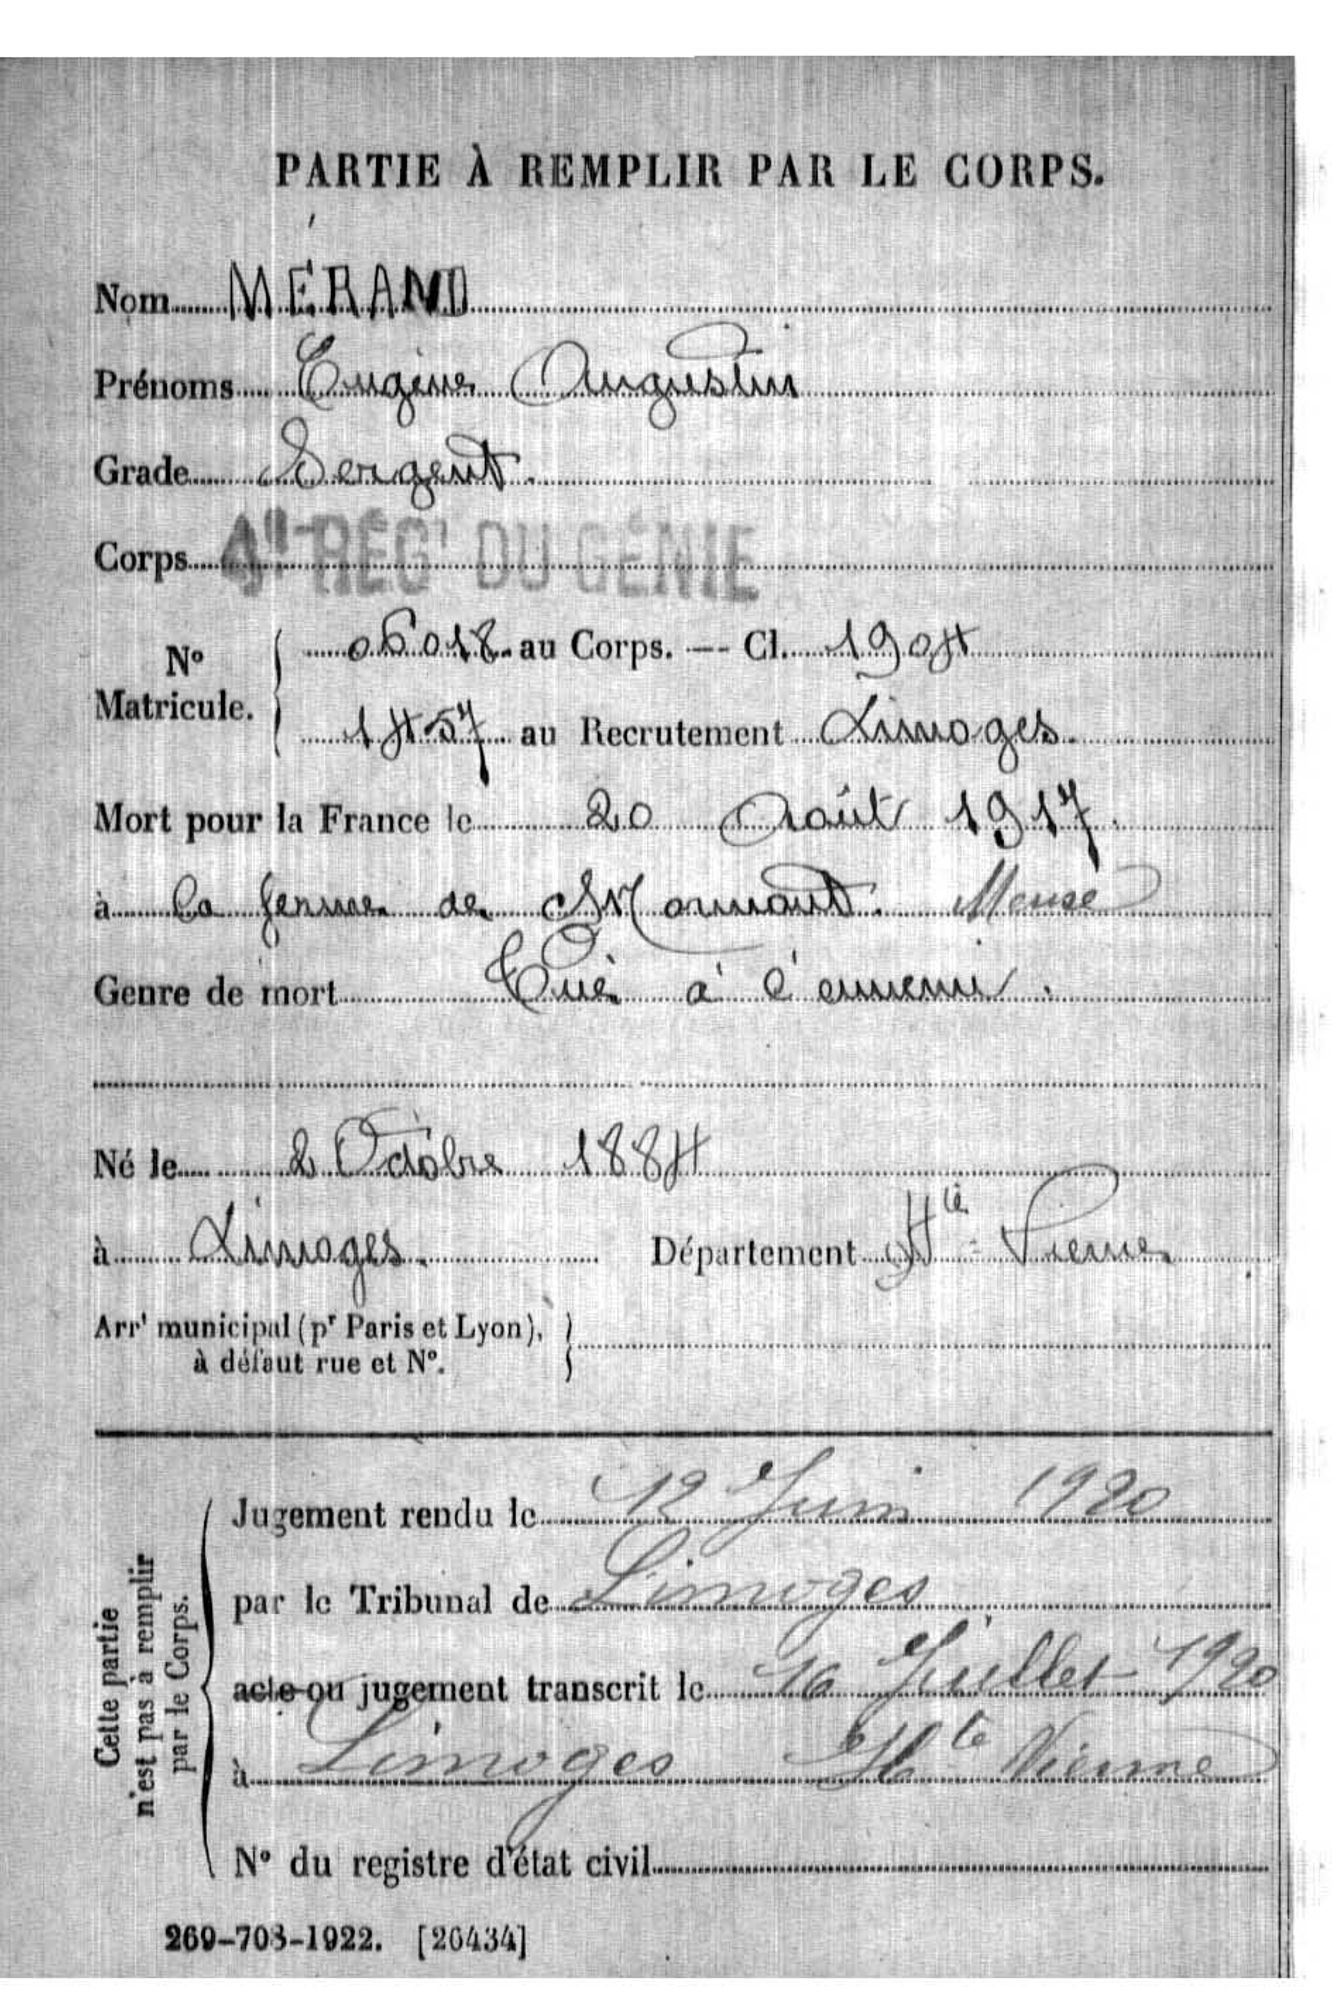 PARTIE À REMPLIR PAR LE CORPS.
Nom MÉRAND
Prénoms Eugène Augustin
Grade Sergent.
Corps 4e RÉGt DU GÉNIE
No Matricule. { 06018 au Corps. — Cl. 1904
1457 au Recrutement Limoges.
Mort pour la France le 20 Août 1917.
à la ferme de Mormont. Meuse
Genre de mort Tué à l'ennemi.
Né le 2 Octobre 1884
à Limoges. Département Hte Vienne
Arrt municipal (pr Paris et Lyon), }
à défaut rue et No.
Cette partie
n'est pas à remplir
par le Corps.
Jugement rendu le 12 Juin 1920
par le Tribunal de Limoges
acte ou jugement transcrit le 16 Juillet 1920
à Limoges Hte Vienne
No du registre d'état civil
269-708-1922. [26434]